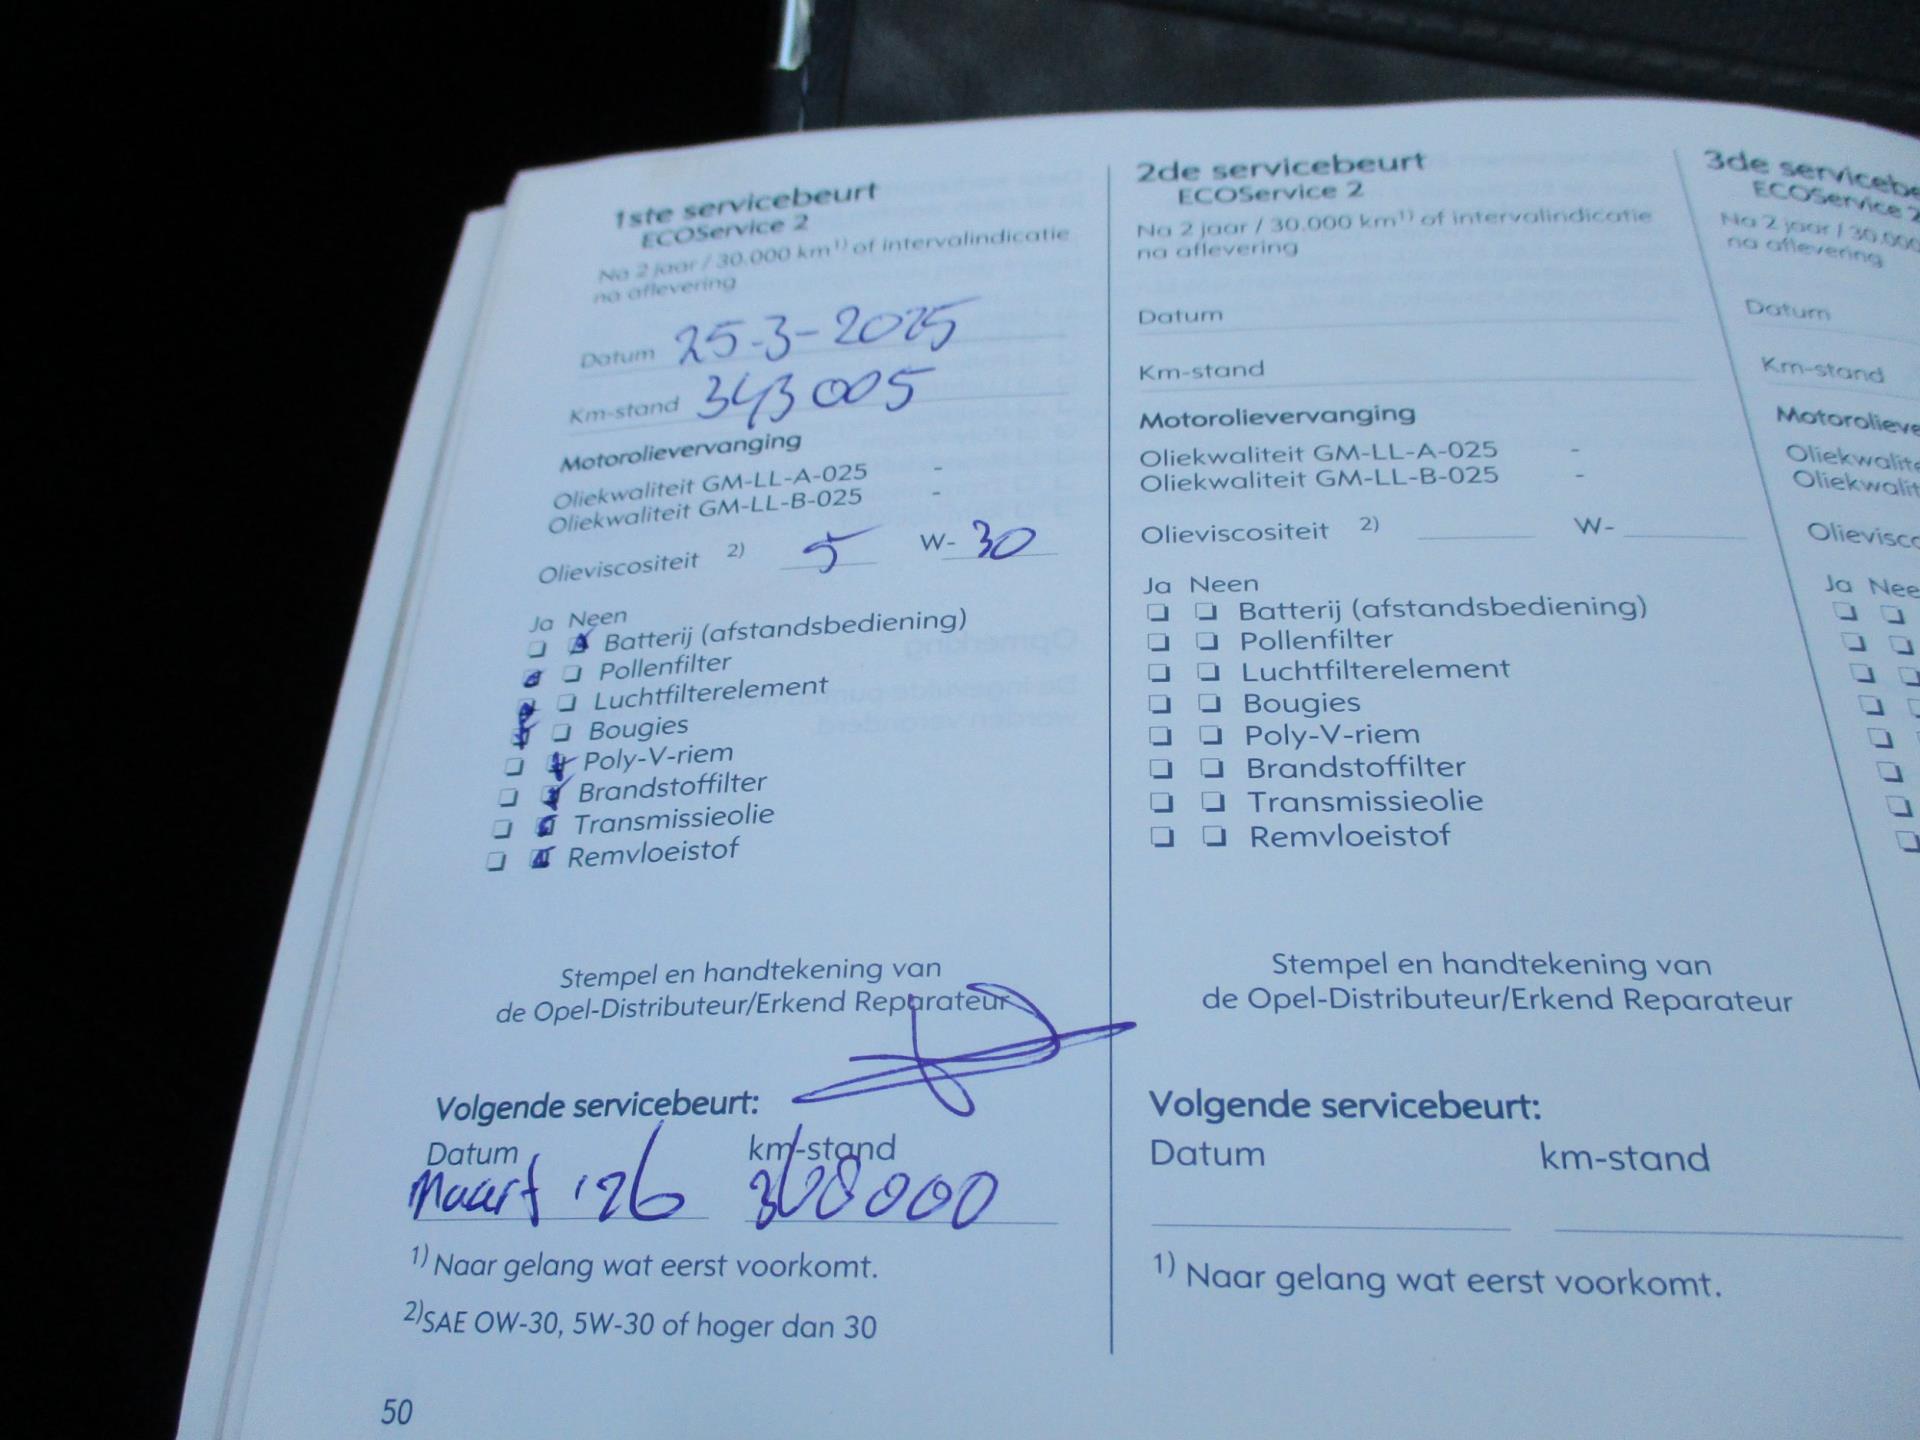 1ste servicebeurt
ECOService 2
Na 2 jaar / 30.000 km1) of intervalindicatie
na aflevering
Datum 25-3-2025
Km-stand 343005
Motorolievervanging
Oliekwaliteit GM-LL-A-025 -
Oliekwaliteit GM-LL-B-025 -
Olieviscositeit 2) 5 W- 30
Ja Neen
Batterij (afstandsbediening)
Pollenfilter
Luchtfilterelement
Bougies
Poly-V-riem
Brandstoffilter
Transmissieolie
Remvloeistof
Stempel en handtekening van
de Opel-Distributeur/Erkend Reparateur
Volgende servicebeurt:
Datum km-stand
Maart '26 368000
1) Naar gelang wat eerst voorkomt.
2) SAE OW-30, 5W-30 of hoger dan 30
50
2de servicebeurt
ECOService 2
Na 2 jaar / 30.000 km1) of intervalindicatie
na aflevering
Datum
Km-stand
Motorolievervanging
Oliekwaliteit GM-LL-A-025 -
Oliekwaliteit GM-LL-B-025 -
Olieviscositeit 2) W-
Ja Neen
Batterij (afstandsbediening)
Pollenfilter
Luchtfilterelement
Bougies
Poly-V-riem
Brandstoffilter
Transmissieolie
Remvloeistof
Stempel en handtekening van
de Opel-Distributeur/Erkend Reparateur
Volgende servicebeurt:
Datum km-stand
1) Naar gelang wat eerst voorkomt.
3de servicebe
ECOService 2
Na 2 jaar / 30.000
na aflevering
Datum
Km-stand
Motorolieve
Oliekwalite
Oliekwalit
Olievisco
Ja Nee